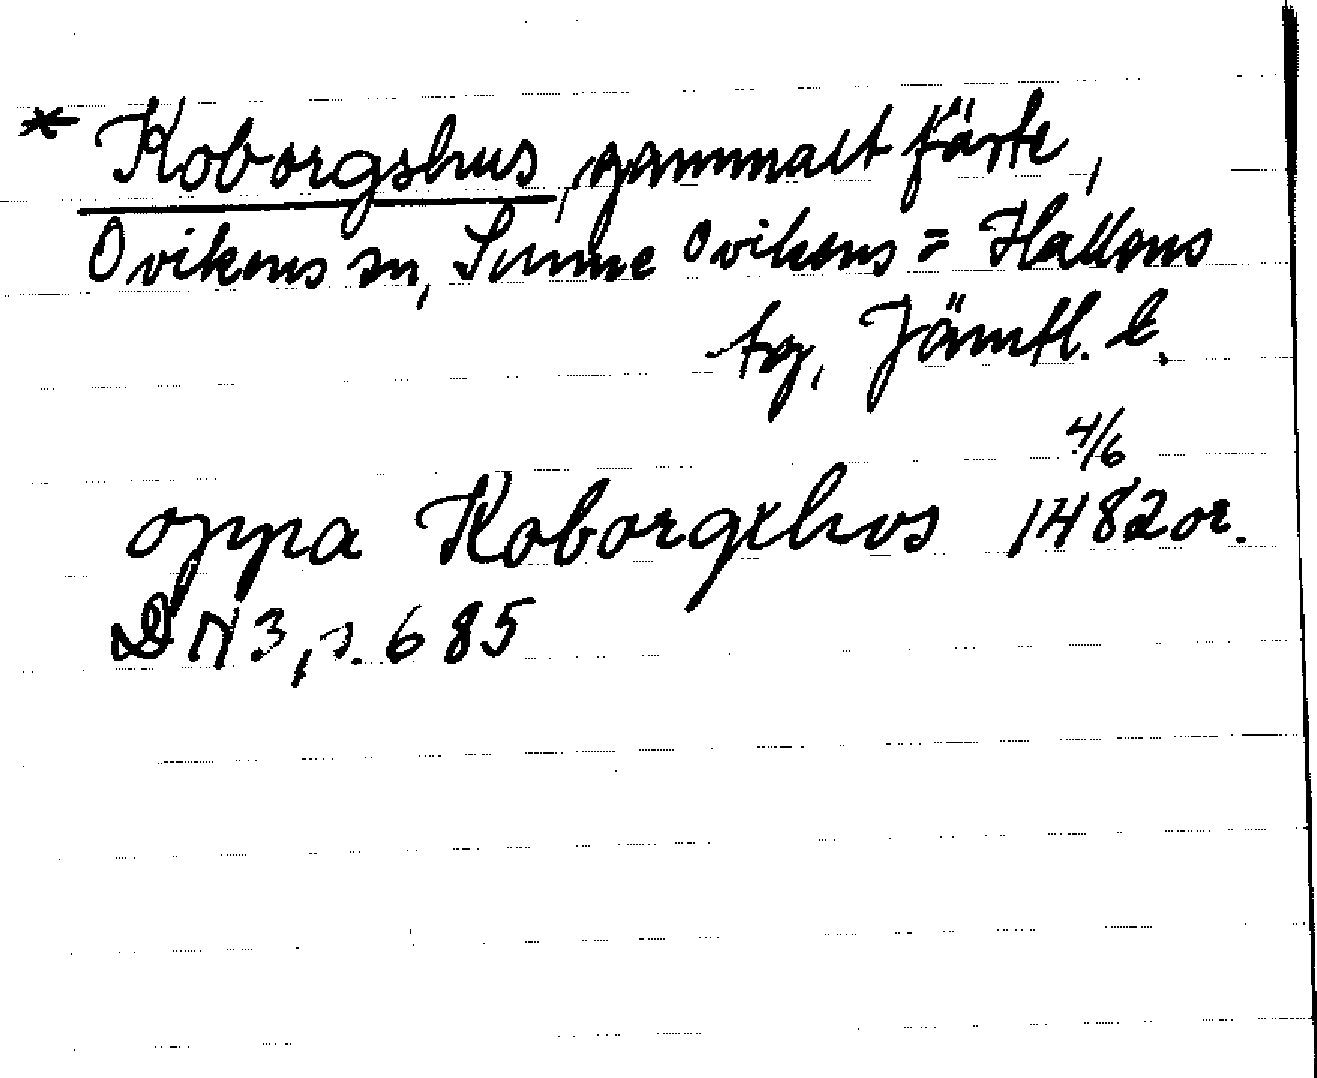 * Koborgshus, gammalt fäste,
Ovikens sn, Sunne Ovikens = Hallens
tg, Jämtl. l.
4/6
oppa Koborgxhos 1482 or.
DN 3, s. 685